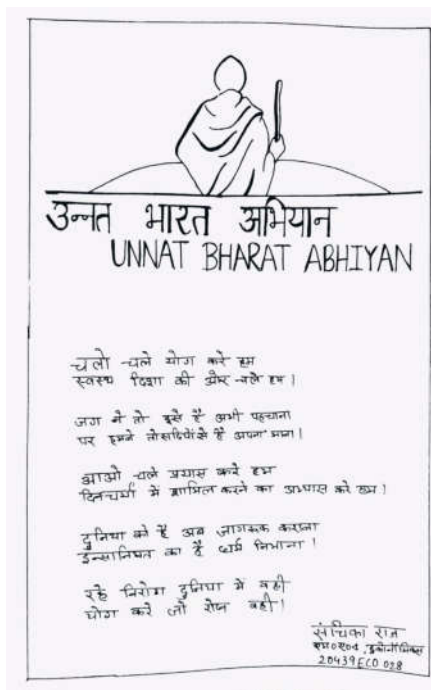 उन्नत भारत अभियान
UNNAT BHARAT ABHIYAN
चलो चले योग करे हम
स्वस्थ दिशा की ओर चले हम।
जग ने तो इसे है अभी पहचाना
पर हमने तो सदियों से है अपना माना।
आओ चले प्रयास करे हम
दिनचर्या में शामिल करने का अभ्यास करे हम।
दुनिया को है अब जागरूक कराना
इन्सानियत का है धर्म निभाना।
रहे निरोग दुनिया में वही
योग करे जो रोज वही।
संचिका राज
एम०ए०, इकोनॉमिक्स
20439ECO028